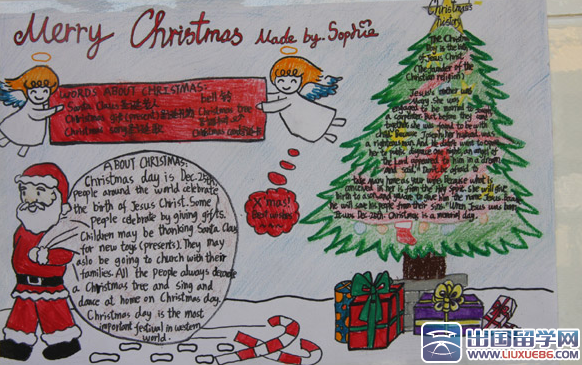 Merry Christmas Made by. Sophia
WORDS ABOUT CHRISTMAS:
Santa Claus 圣诞老人
bell 铃
Christmas tree
Christmas card
ABOUT CHRISTMAS:
Christmas day is Dec. 25th.
people around the world celebrate
the birth of Jesus Christ. Some
people celebrate by giving gifts.
Children may be thanking Santa Claus
for new toys (presents). They may
aslo be going to church with their
families. All the people always decorate
a Christmas tree and sing and
dance at home on Christmas day.
Christmas day is the most
important festival in western
world.
X'mas!
Best wishes
Christmas
history
The Christmas
Day is the day
of Jesus Christ
(the founder of the
Christian religion)
Jesus's mother was
Mary. She was
engaged to be married to Joseph,
a carpenter. But before they came
together, she was found to be with
child. Because Joseph, her husband, was
a righteous man. And he didn't want to expose
her to public disgrace.
Lord appeared to him in a dream
and said: don't be afraid to
take Mary home as your wife. Because what is
conceived in her is from the Holy Spirit. She will give
birth to a son and give the name Jesus, because
he will save his people from their sins. When Jesus was born
Dec. 25th. Christmas is a memorial day.
出国留学网
www.liuxue86.com